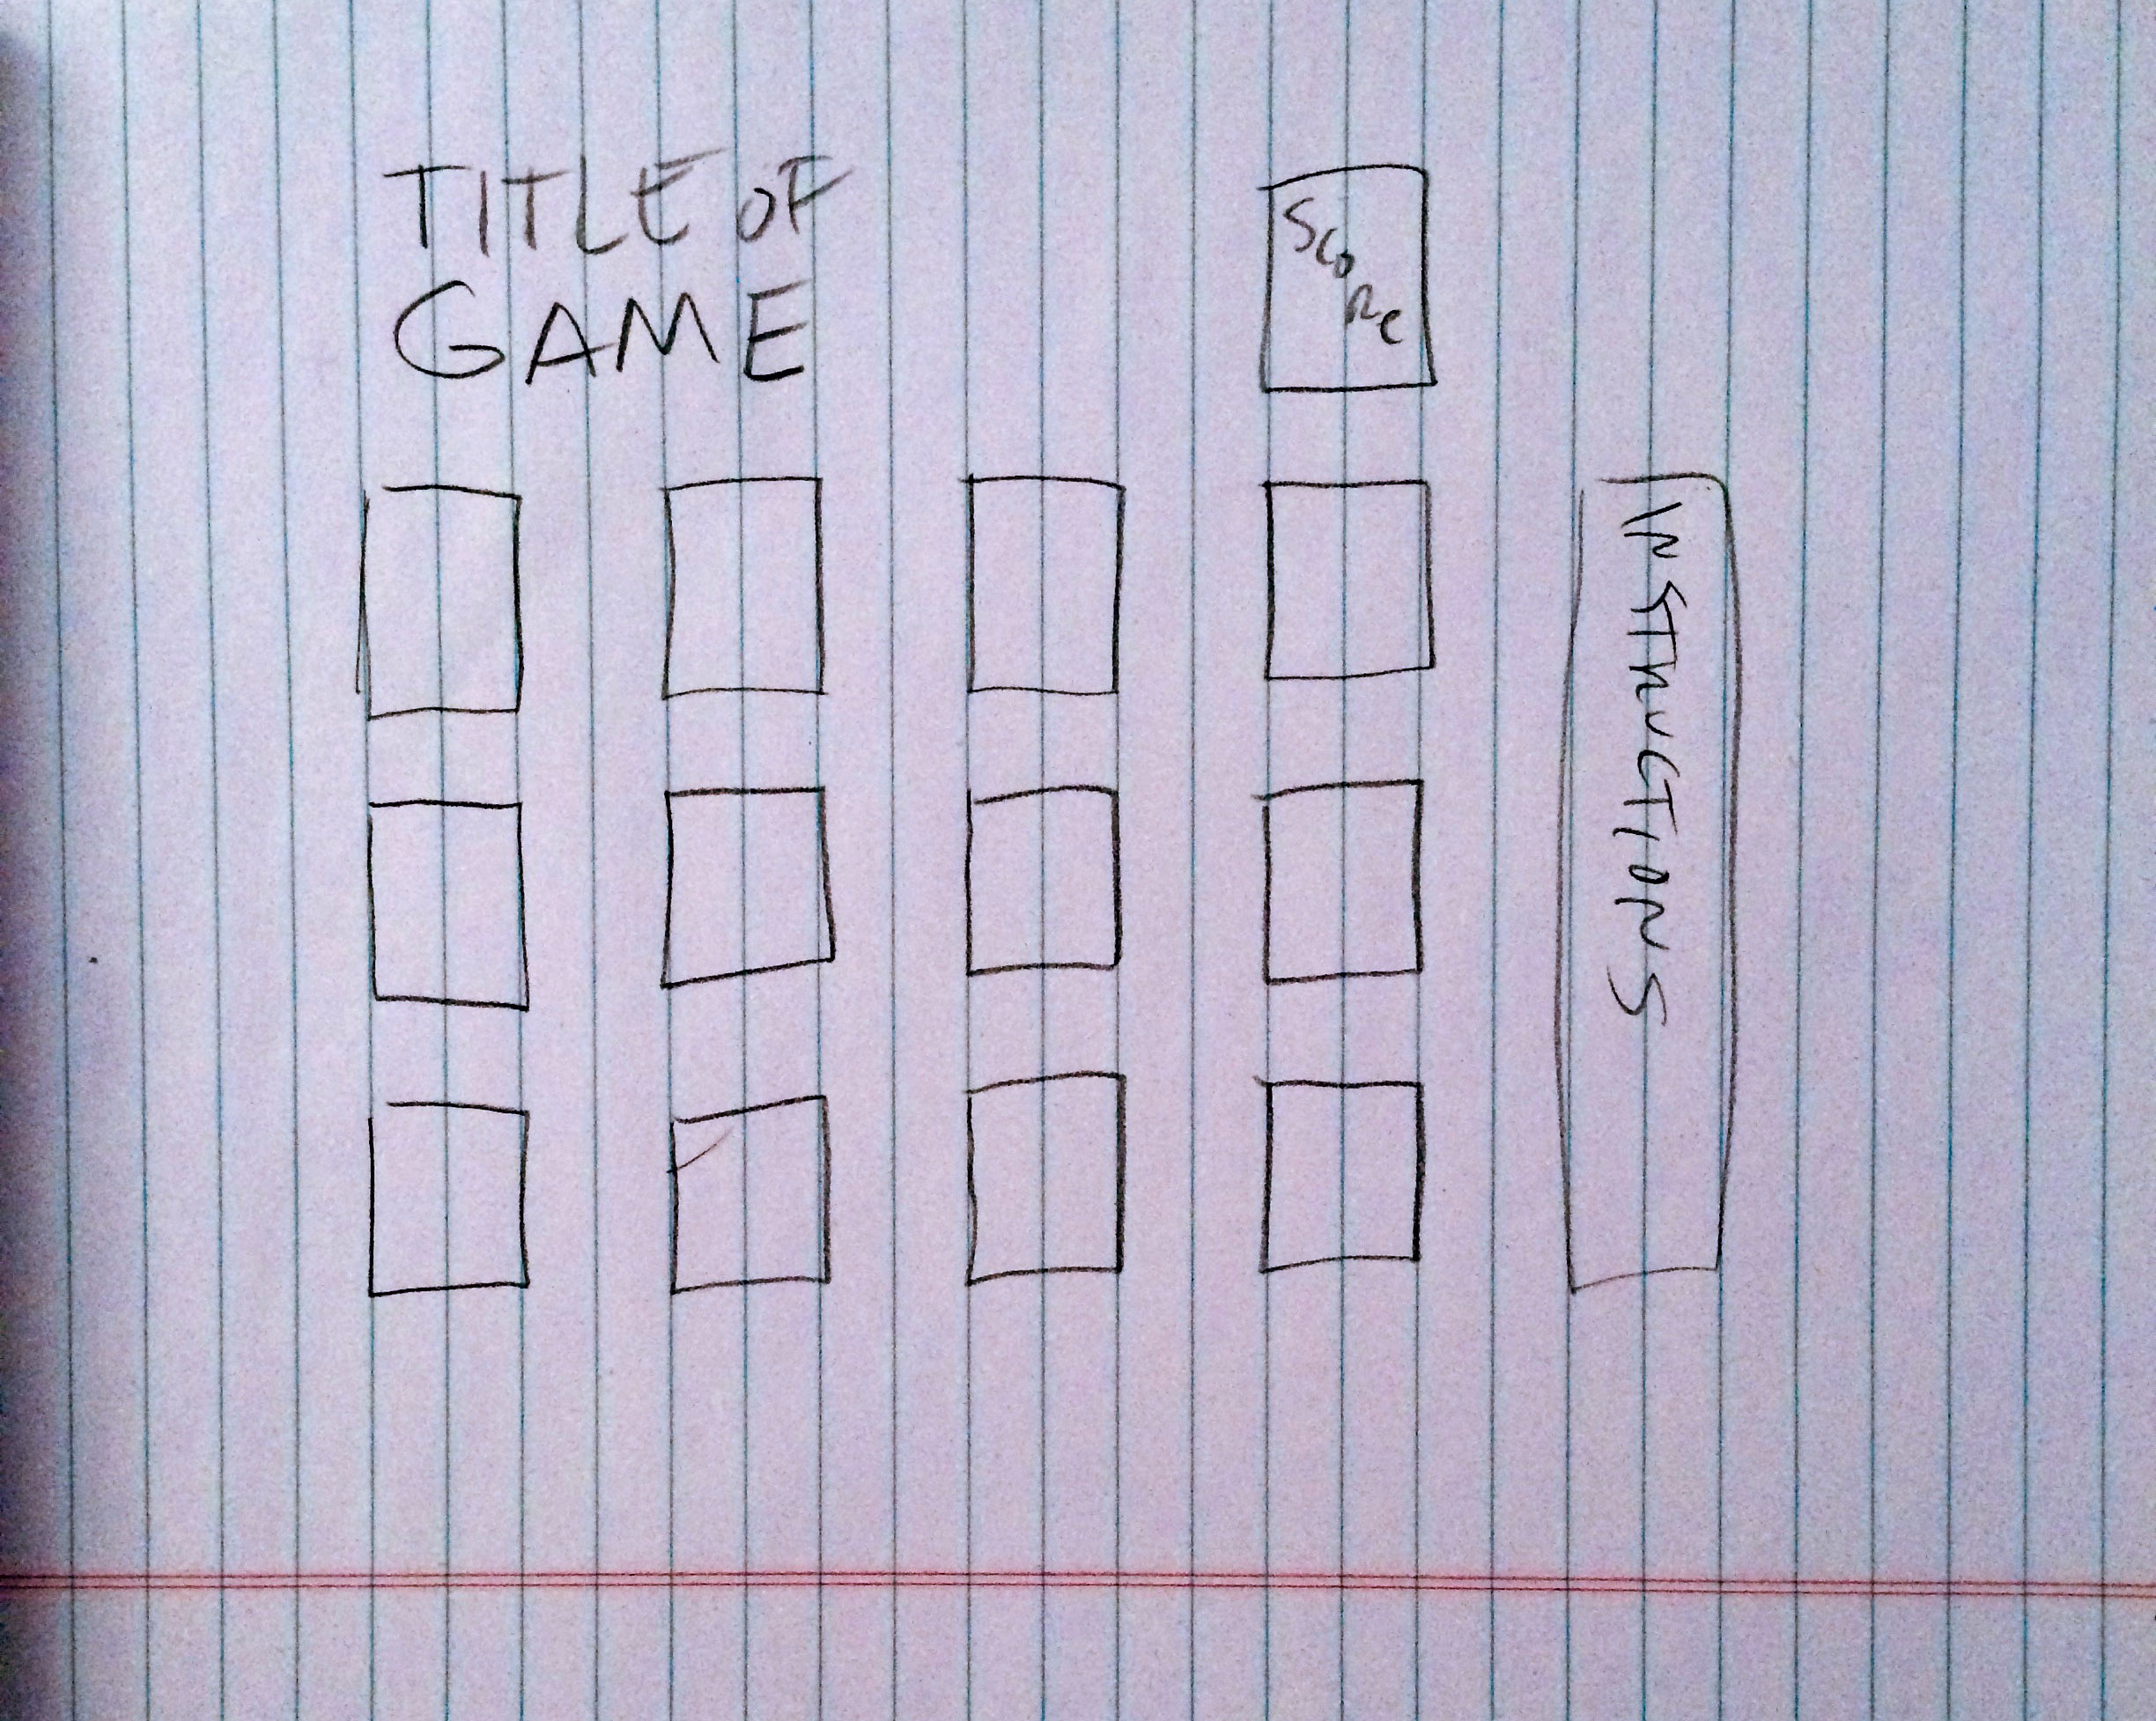 TITLE OF
GAME
SCORe
INSTRUCTIONS